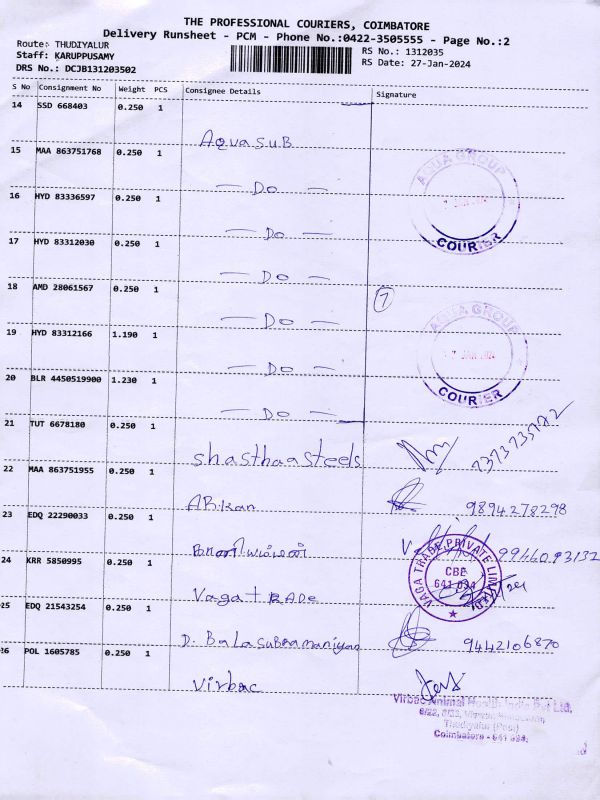 THE PROFESSIONAL COURIERS, COIMBATORE
Delivery Runsheet - PCM - Phone No.:0422-3505555 - Page No.:2
Route: THUDIYALUR
Staff: KARUPPUSAMY
DRS No.: DCJB131203502
RS No.: 1312035
RS Date: 27-Jan-2024
S No Consignment No Weight PCS Consignee Details Signature
14 SSD 668403 0.250 1 Aqua sub
15 MAA 863751768 0.250 1 — Do —
16 HYD 83336597 0.250 1 — Do —
17 HYD 83312030 0.250 1 — Do —
18 AMD 28061567 0.250 1 — Do —
19 HYD 83312166 1.190 1 — Do —
20 BLR 4450519900 1.230 1 — Do —
AQUA GROUP
COURIER
7
AQUA GROUP
7 JAN 2024
COURIER
21 TUT 6678180 0.250 1 shasthaasteels
22 MAA 863751955 0.250 1 ARkan 9894278298
23 EDQ 22290033 0.250 1
24 KRR 5850995 0.250 1 Vaga TRADe
VAGA TRADE PRIVATE LIMITED
CBE
641 034
25 EDQ 21543254 0.250 1 D. Balasubramaniyan 9442106870
26 POL 1605785 0.250 1 Virbac
Virbac Animal Health India Pvt Ltd.
Thudiyalur (Post)
Coimbatore - 641 034.